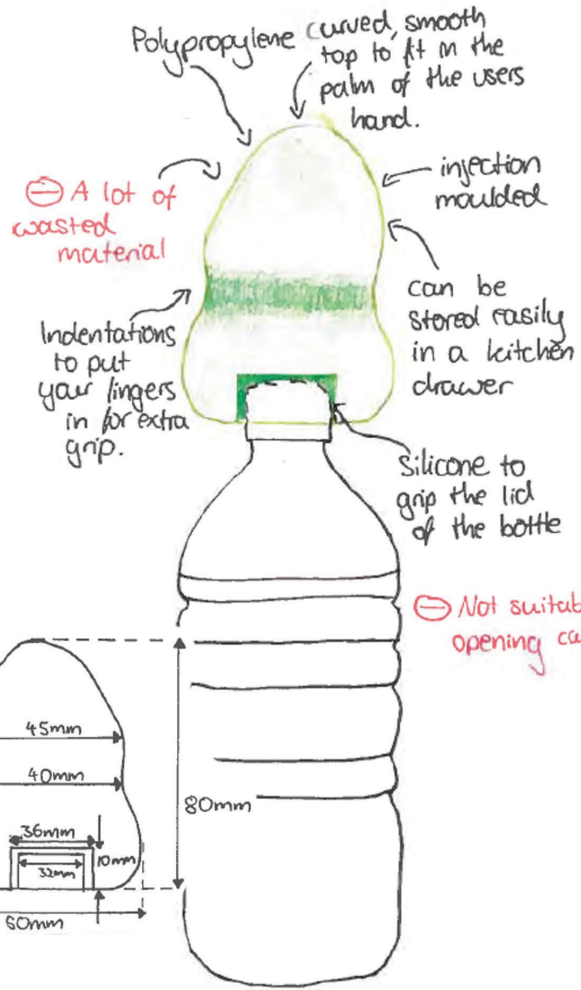 Polypropylene
curved, smooth
top to fit in the
palm of the users
hand.
⊖ A lot of
wasted
material
injection
moulded
can be
stored easily
in a kitchen
drawer
Indentations
to put
your fingers
in for extra
grip.
Silicone to
grip the lid
of the bottle
⊖ Not suitab
opening ca
45mm
40mm
80mm
36mm
10mm
32mm
60mm